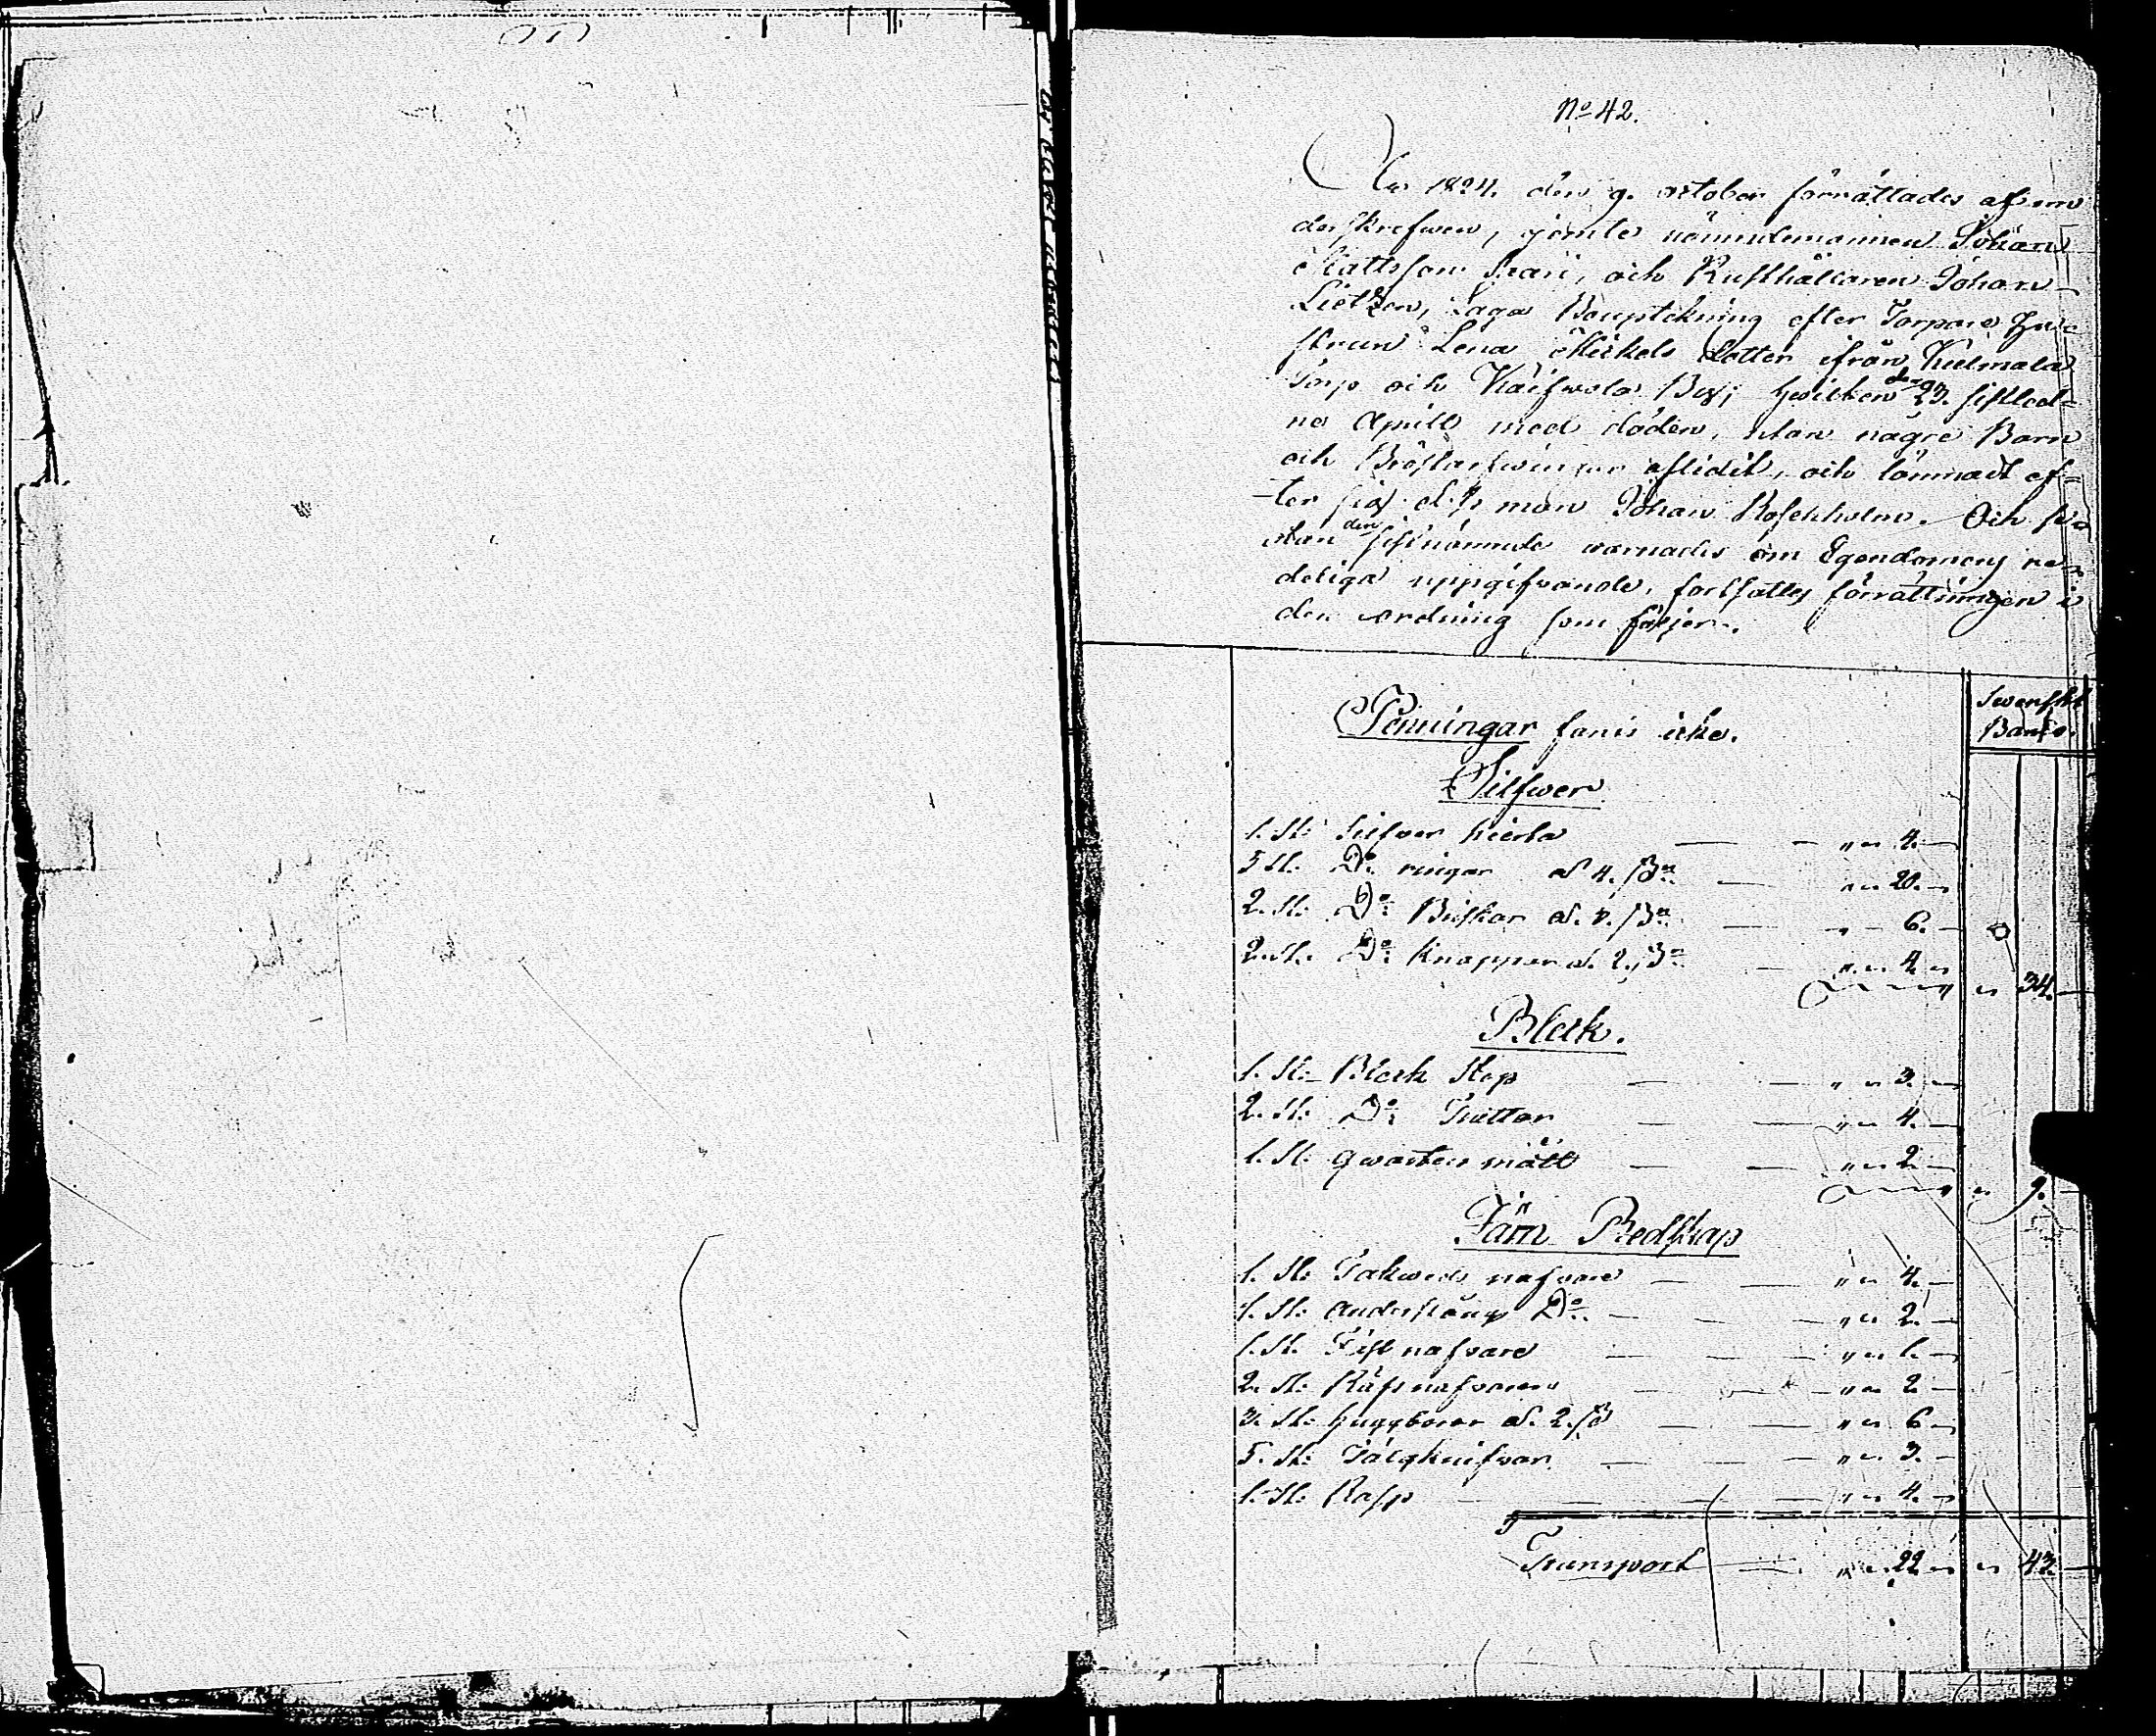 No 42.
År 1824. den 9. october förrättades af un
derskrefwen, jemte nämndemannen Johan
Mattsson, och Rusthållaren Johan
Lietzen, Laga Bouptekning efter Torpare Hu-
strun Lena Mickels dotter ifrån Kulmala
Torp och Byj hwilken den 23. sistled-
ne Aprill med döden, utan någre Barn
och Bröstarfwingar aflidit, och lämnadt ef-
ter sig dess man Johan Rosenholm. Och se-
dan den sistnämnde warnades om Egendomens re-
deliga uppgifwande, fortsattes förrättningen i
den ordning som följer.
Swenskt
Banko.
Penningar fanns icke.
Silfwer
1. St: Silfwer hierta — „ „ 4. —
5 St: Do ringar à 4. ß — „ „ 20. —
2. St: Do Buskar à ß — „ — 6. —
2. St: Do Knappar à 2. ß — „ „ 4 „
„ „ 34. —
Bleck.
1. St: Bleck Stop — — „ „ 3. —
2. St: Do Trattar — — „ „ 4. —
1. St: qwarters mått — — „ „ 2 —
„ „ 9. —
Järn Redskap
1. St: Takweds nafvare — — „ „ 4. —
1. St: Do — — „ „ 2. —
1. St: nafvare — — — „ „ 1. —
2. St: Räfs nafvare — — „ „ 2 —
3. St: huggborar à 2. ß — — „ „ 6 —
5. St: Täljknifvar — — „ „ 3. —
1. St: Rasp — — — „ „ 4. —
Transport — — „ „ 22 „ „ 43. —